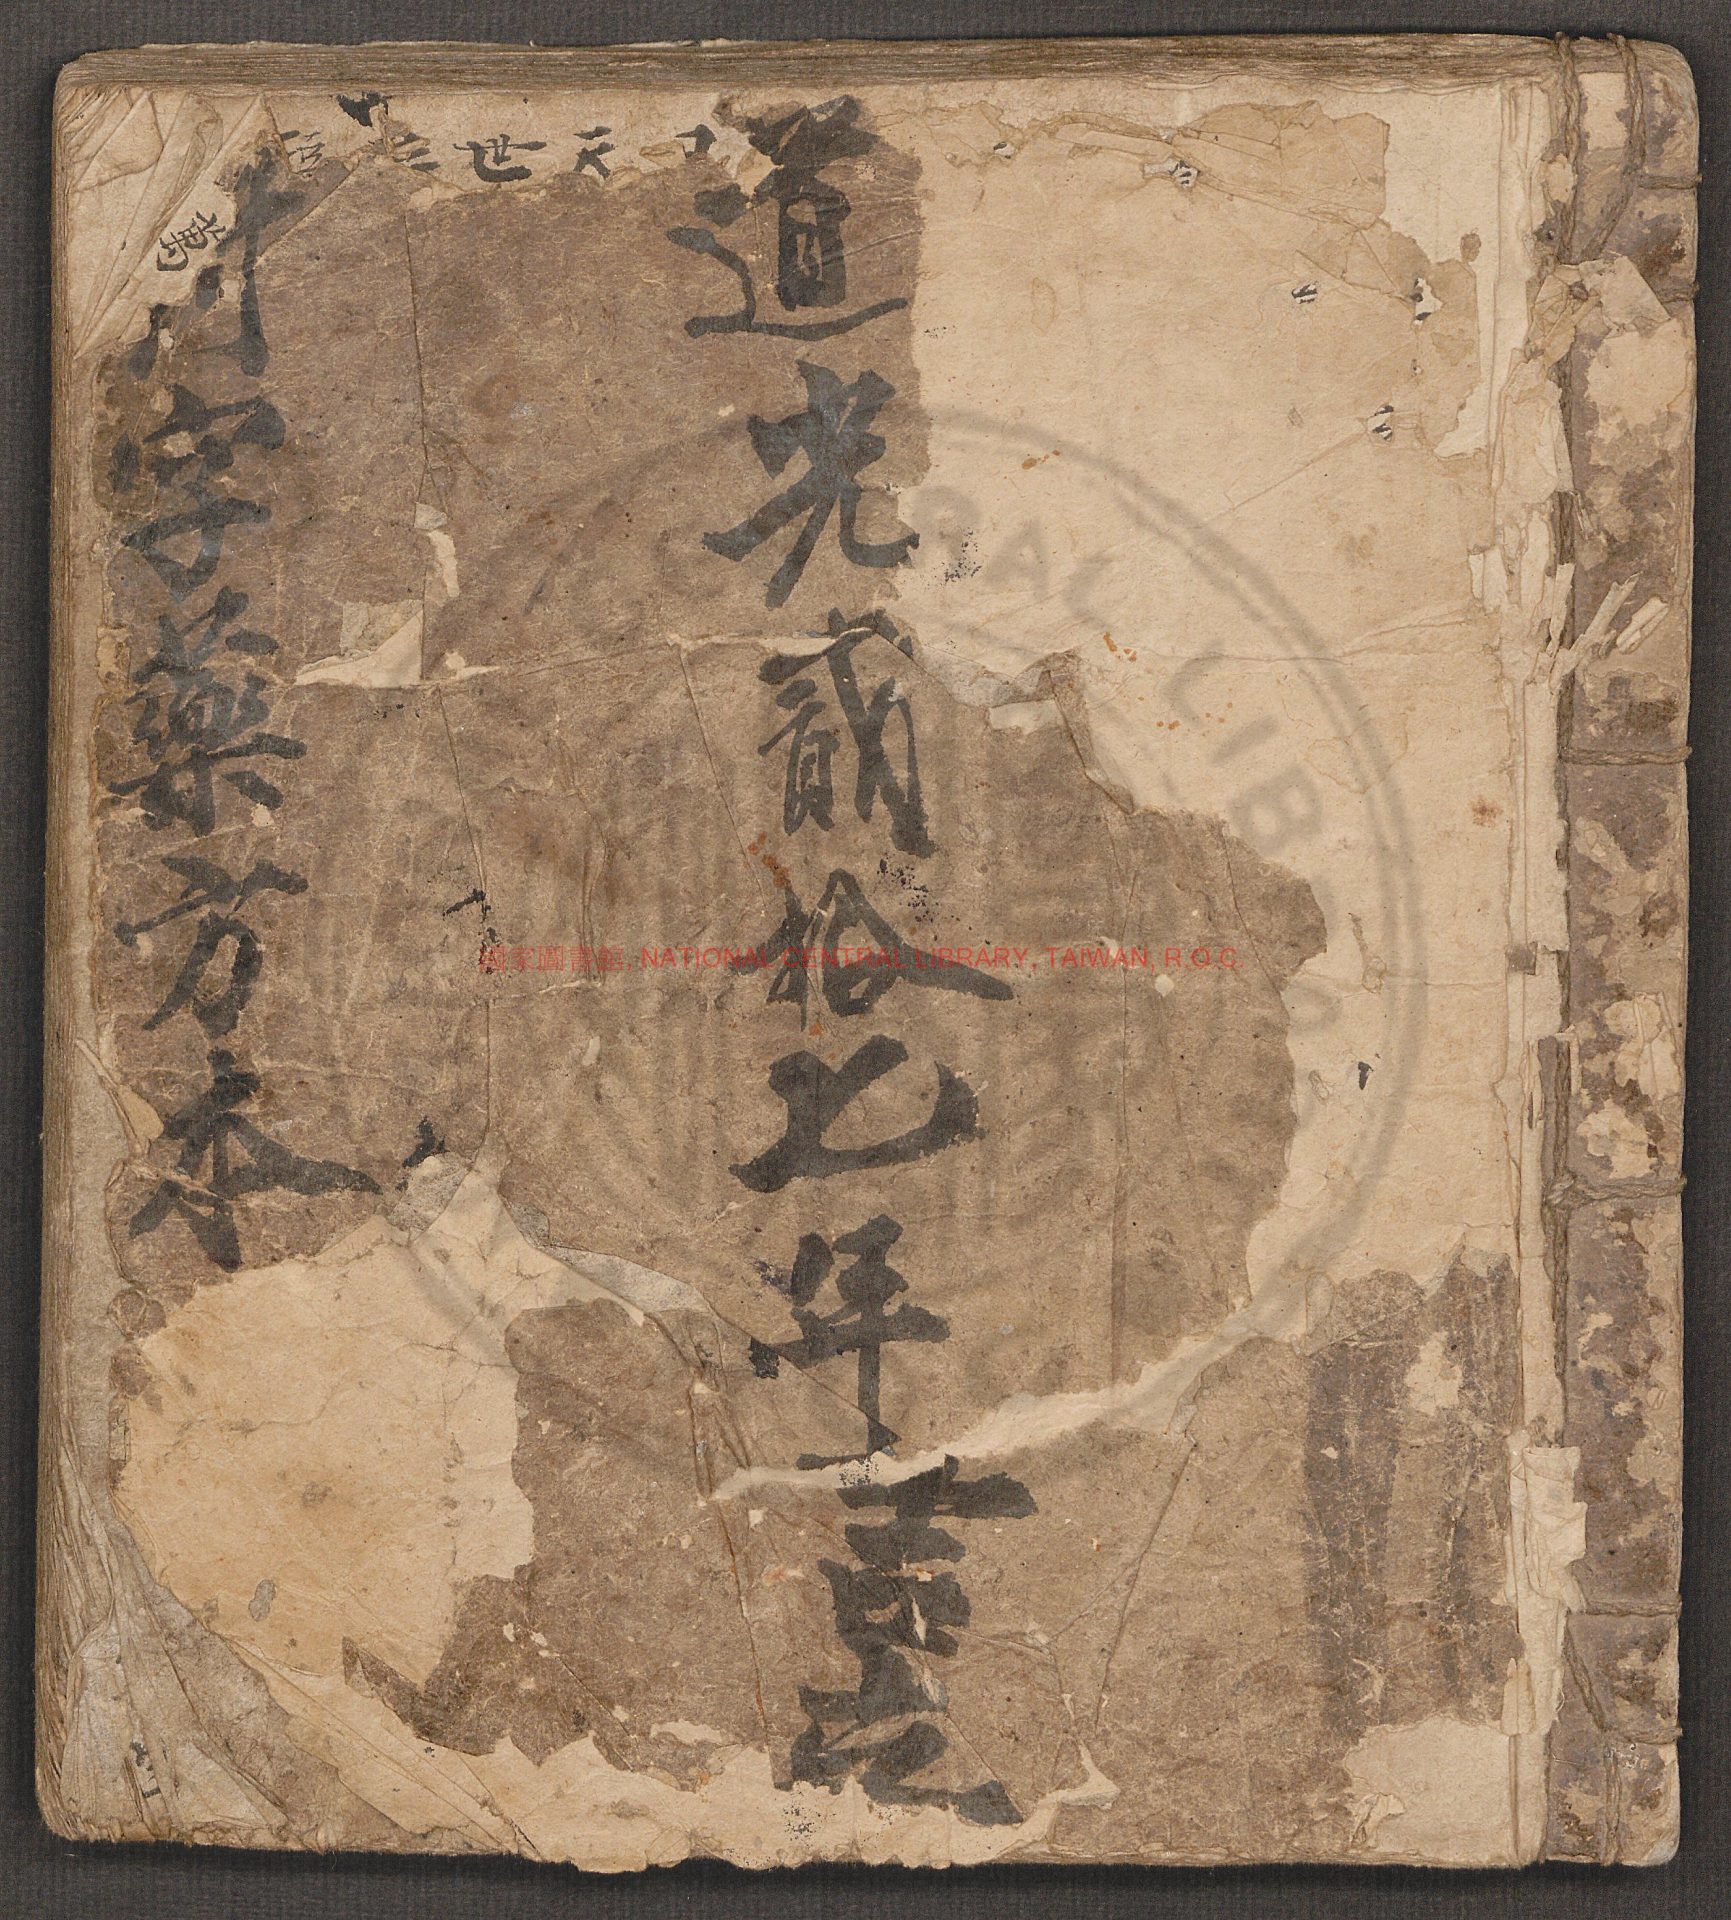 道光貳拾七年吉置
字藥方本
天世
萬
國家圖書館, NATIONAL CENTRAL LIBRARY, TAIWAN, R.O.C
RAL LIBR